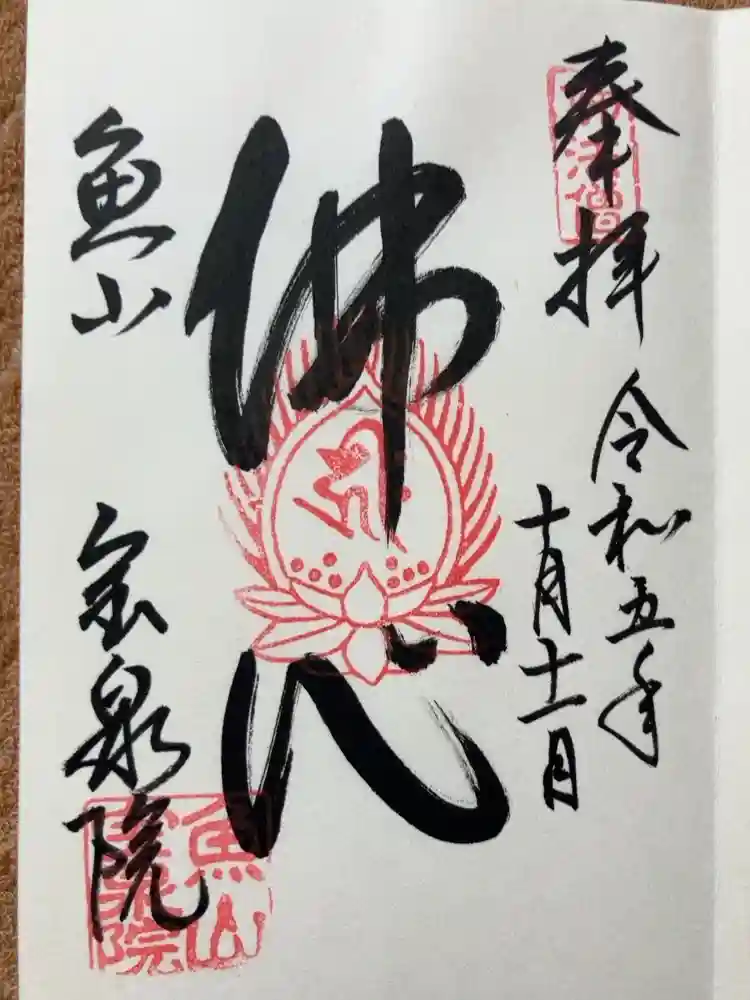 奉拝
令和五年
十月十一日
佛心
魚山
宝泉院
法僧
魚山
宝泉院